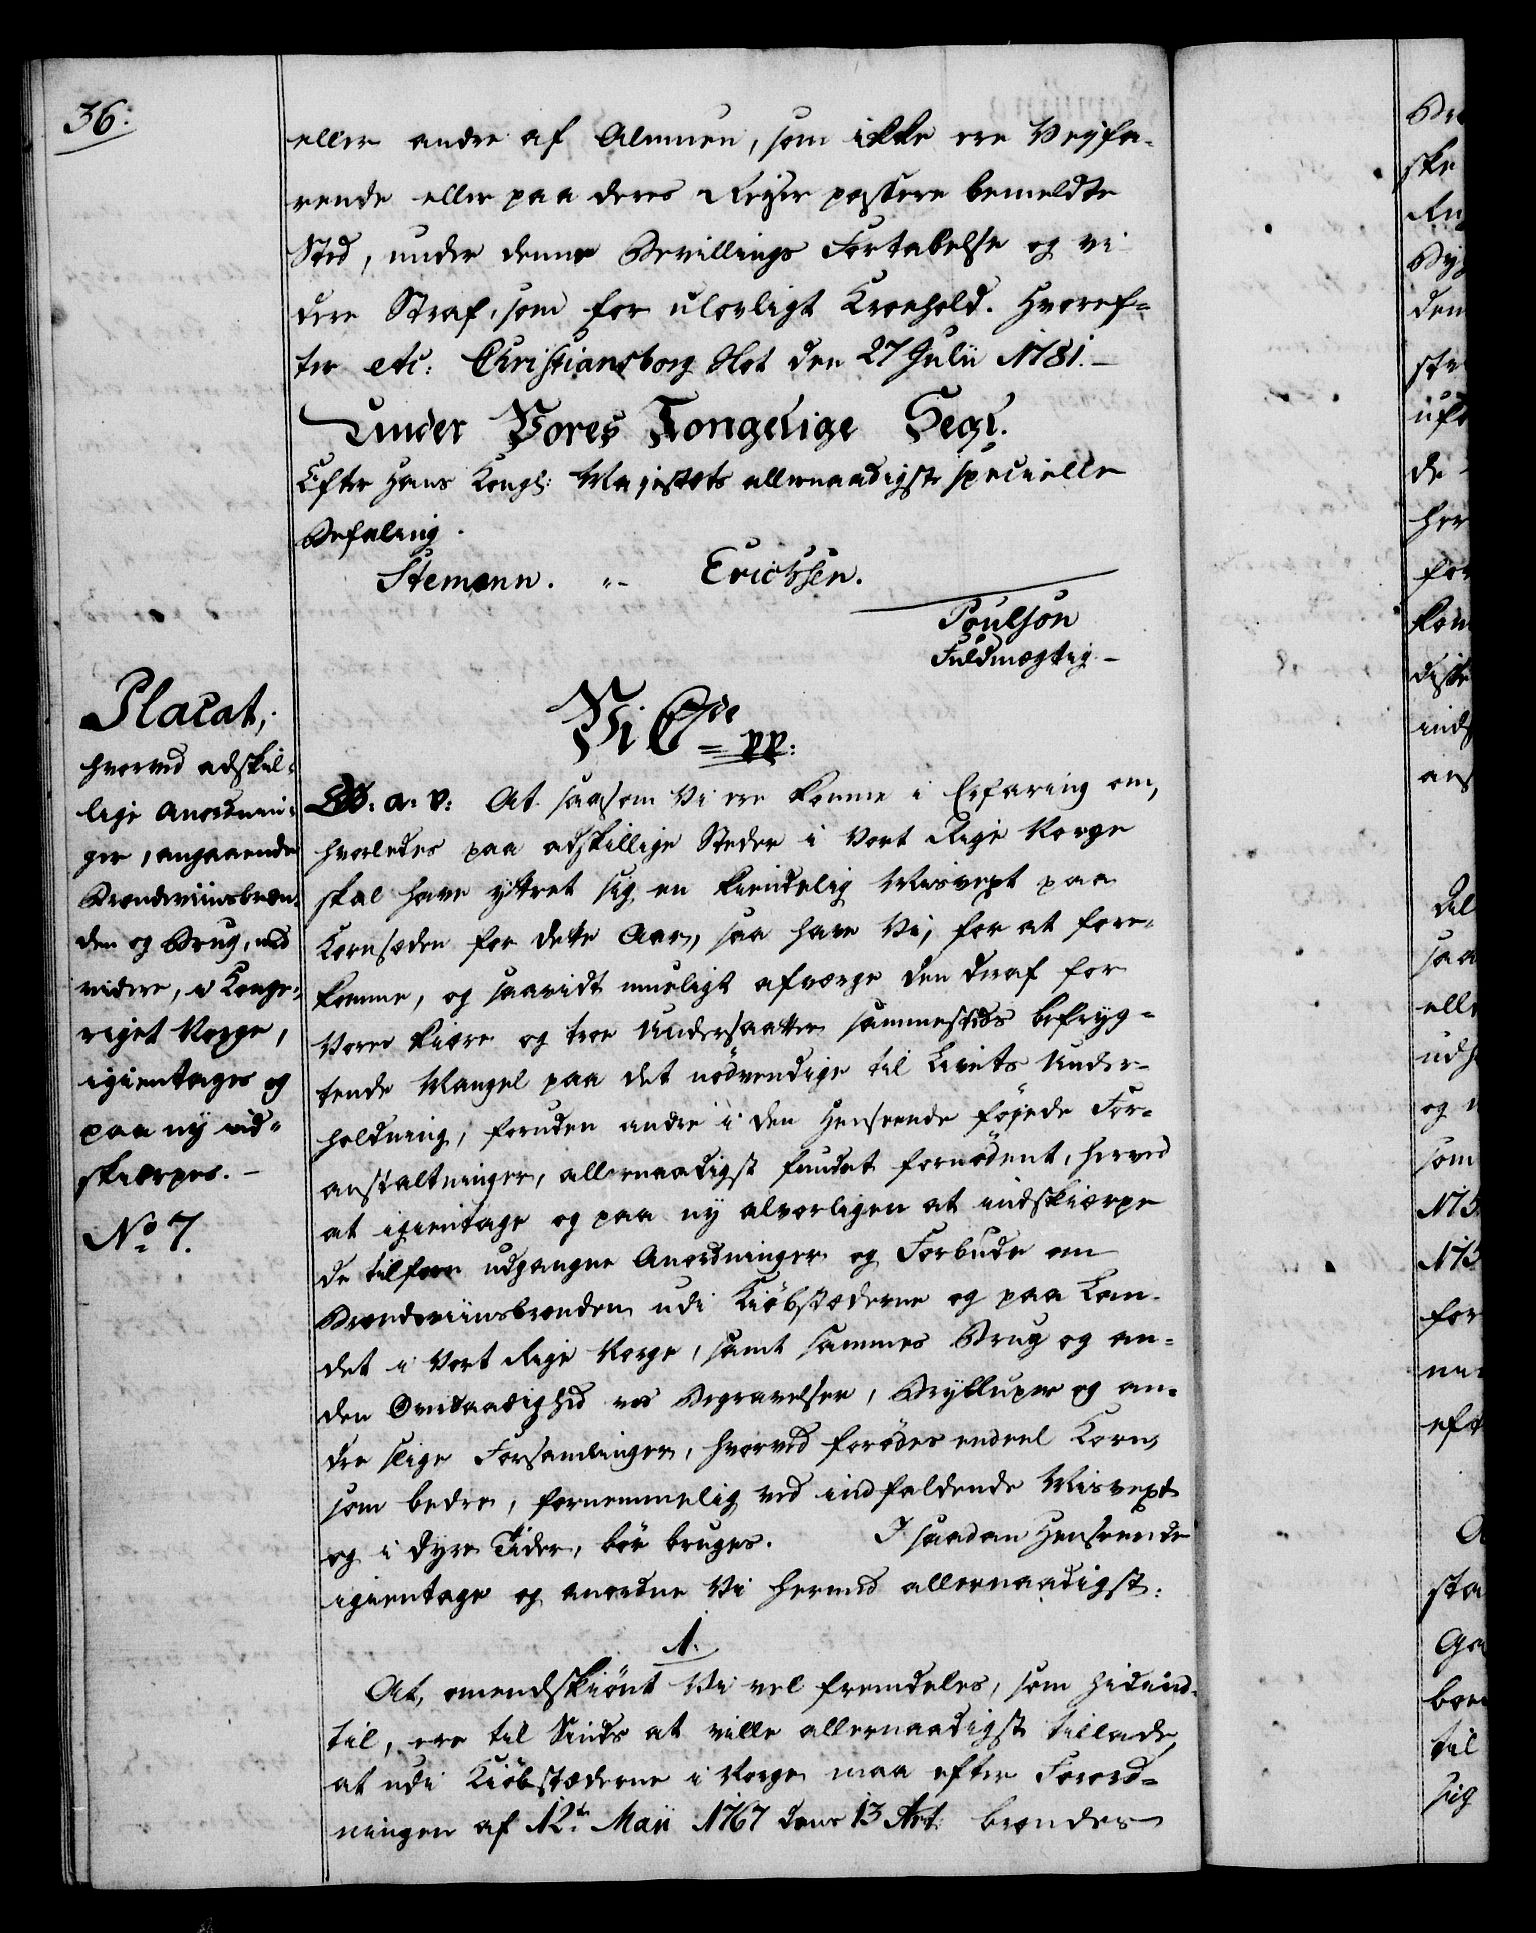 36:
eller andre af Almuen, som ikke ere Vejfa-
rende eller paa deres Rejser passere bemeldte
Sted, under denne Bevillings Fortabelse og vi
dere Straf, som for ulovligt Kroehold. Hvoref-
ter etc: Christiansborg Slot den 27 Julii 1781.-
Under Vores Kongelige Segl.
Efter Hans Kongl: Majestets allernaadigste specielle
Befaling.
Stemann. Erichsen.
Poulson
Fuldmægtig-
Placat,
hvorved adskil-
lige Anordnin-
ger, angaaende
Brændeviinsbræn-
den og Brug, med
videre, i Konge-
riget Norge,
igientages og
paa ny ind-
skiærpes.-
No 7.
Vi C 7de pp:
G. a. v: At saasom Vi ere komne i Erfaring om,
hvorledes paa adskillige Steder i Vort Rige Norge
skal have yttret sig en kiendelig Misvext paa
Kornsæden for dette Aar, saa have Vi, for at fore-
komme, og saavidt mueligt afværge den deraf for
Vore kiære og troe Undersaatter sammesteds befryg-
tende Mangel paa det nödvendige til Livets Under-
holdning, foruden andre i den Henseende föjede For-
anstaltninger, allernaadigst fundet fornödent, herved
at igientage og paa ny alvorligen at indskiærpe
de tilforn udgangne Anordninger og Forbude om
Brændeviinsbrænden udi Kiöbstæderne og paa Lan-
det i Vort Rige Norge, samt sammes Brug og an-
den Overdaadighed ved Begravelser, Brylluper og an-
dre slige Forsamlinger, hvorved forödes endeel Korn,
som bedre, fornemmelig ved indfaldende Misvext
og i dyre Tider, bör bruges. I saadan Henseende
igientage og anordne Vi hermed allernaadigst:
1.
At, omendskiönt Vi vel fremdeles, som hidind-
til, ere til Sinds at ville allernaadigst tillade,
at udi Kiöbstæderne i Norge maa efter Forord-
ningen af 12te Maji 1767 dens 13 Art: brændes